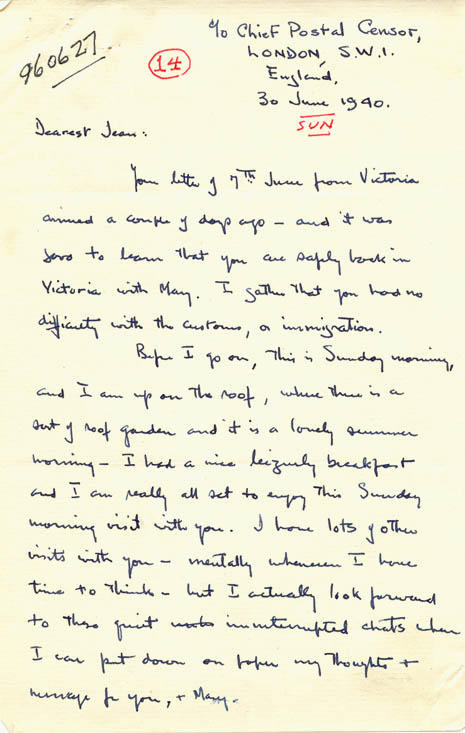 960627
c/o Chief Postal Censor,
LONDON, S.W.1.
England,
14
30 June 1940.
SUN
Dearest Jean:
Your letter of 7th June from Victoria
arrived a couple of days ago – and it was
good to learn that you are safely back in
Victoria with Mary. I gather that you had no
difficulty with the customs, or immigration.
Before I go on, this is Sunday morning,
and I am up on the roof, where there is a
sort of roof garden and it is a lovely summer
morning – I had a nice leizurely breakfast
and I am really all set to enjoy this Sunday
morning visit with you. I have lots of other
visits with you – mentally whenever I have
time to think – but I actually look forward
to these quiet uninterrupted chats when
I can put down on paper my thoughts +
message for you, + Mary.